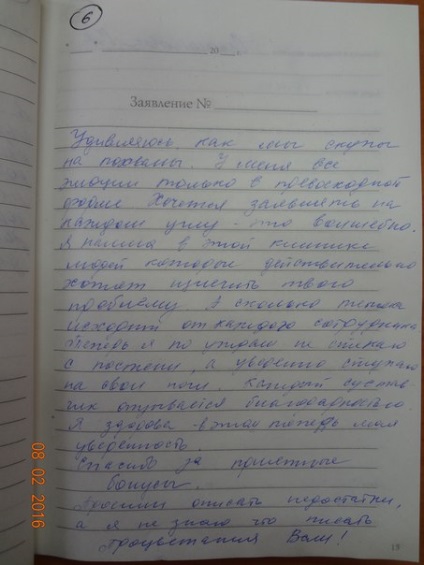 6
20 г.
Заявление №
Удивляюсь, как мы скупы
на похвалы. У меня все
эмоции только в превосходной
форме. Хочется заявлять на
каждом углу - это волшебно.
Я нашла в этой клинике
людей которые действительно
хотят излечить твою
проблему. И сколько тепла
исходит от каждого сотрудника
Теперь я по утрам не стекаю
с постели, а уверенно ступаю
на свои ноги. Каждый сустав-
чик отзывается благодарностью.
Я здорова - в этом теперь моя
уверенность.
Спасибо за приятные
бонусы.
Просили описать недостатки,
а я не знаю что писать
Процветания Вам!
08 02 2016